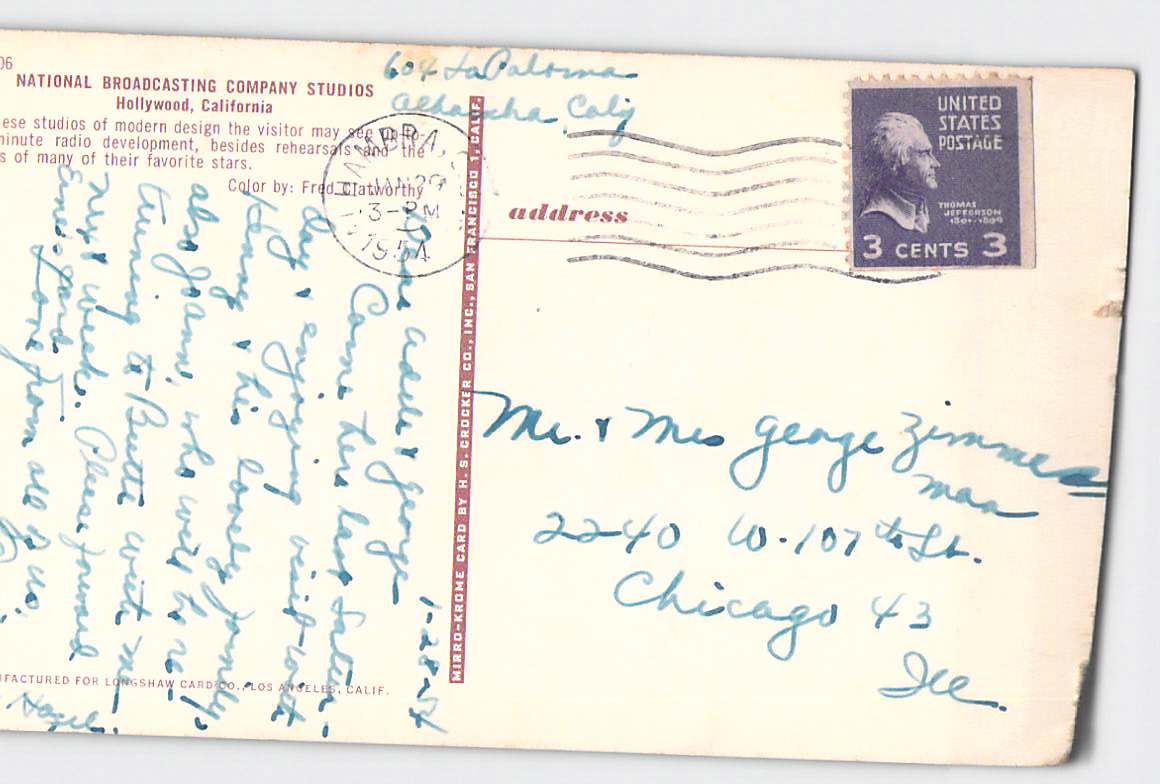 06
NATIONAL BROADCASTING COMPANY STUDIOS
Hollywood, California
ese studios of modern design the visitor may see up-to-
minute radio development, besides rehearsals and the
s of many of their favorite stars.
Color by: Fred Clatworthy
604 La Paloma
Alhambra, Calif
HAMBRA,
JAN 29
3-PM
1954
address
UNITED
STATES
POSTAGE
THOMAS
JEFFERSON
1801-1809
3 CENTS 3
MIRRO-KROME CARD BY H. S. CROCKER CO., INC., SAN FRANCISCO 1, CALIF.
1-28-54
Dear Adele & George
Came here last Satur-
day & enjoying visit with
& his lovely family,
also Joann, who will be re-
turning to Butte with me
next week. Please forward
card.
Love from all of us,
Hazel
Mr. & Mrs George Zimmer
man
2240 W. 107th St.
Chicago 43
Ill.
FACTURED FOR LONGSHAW CARD CO., LOS ANGELES, CALIF.